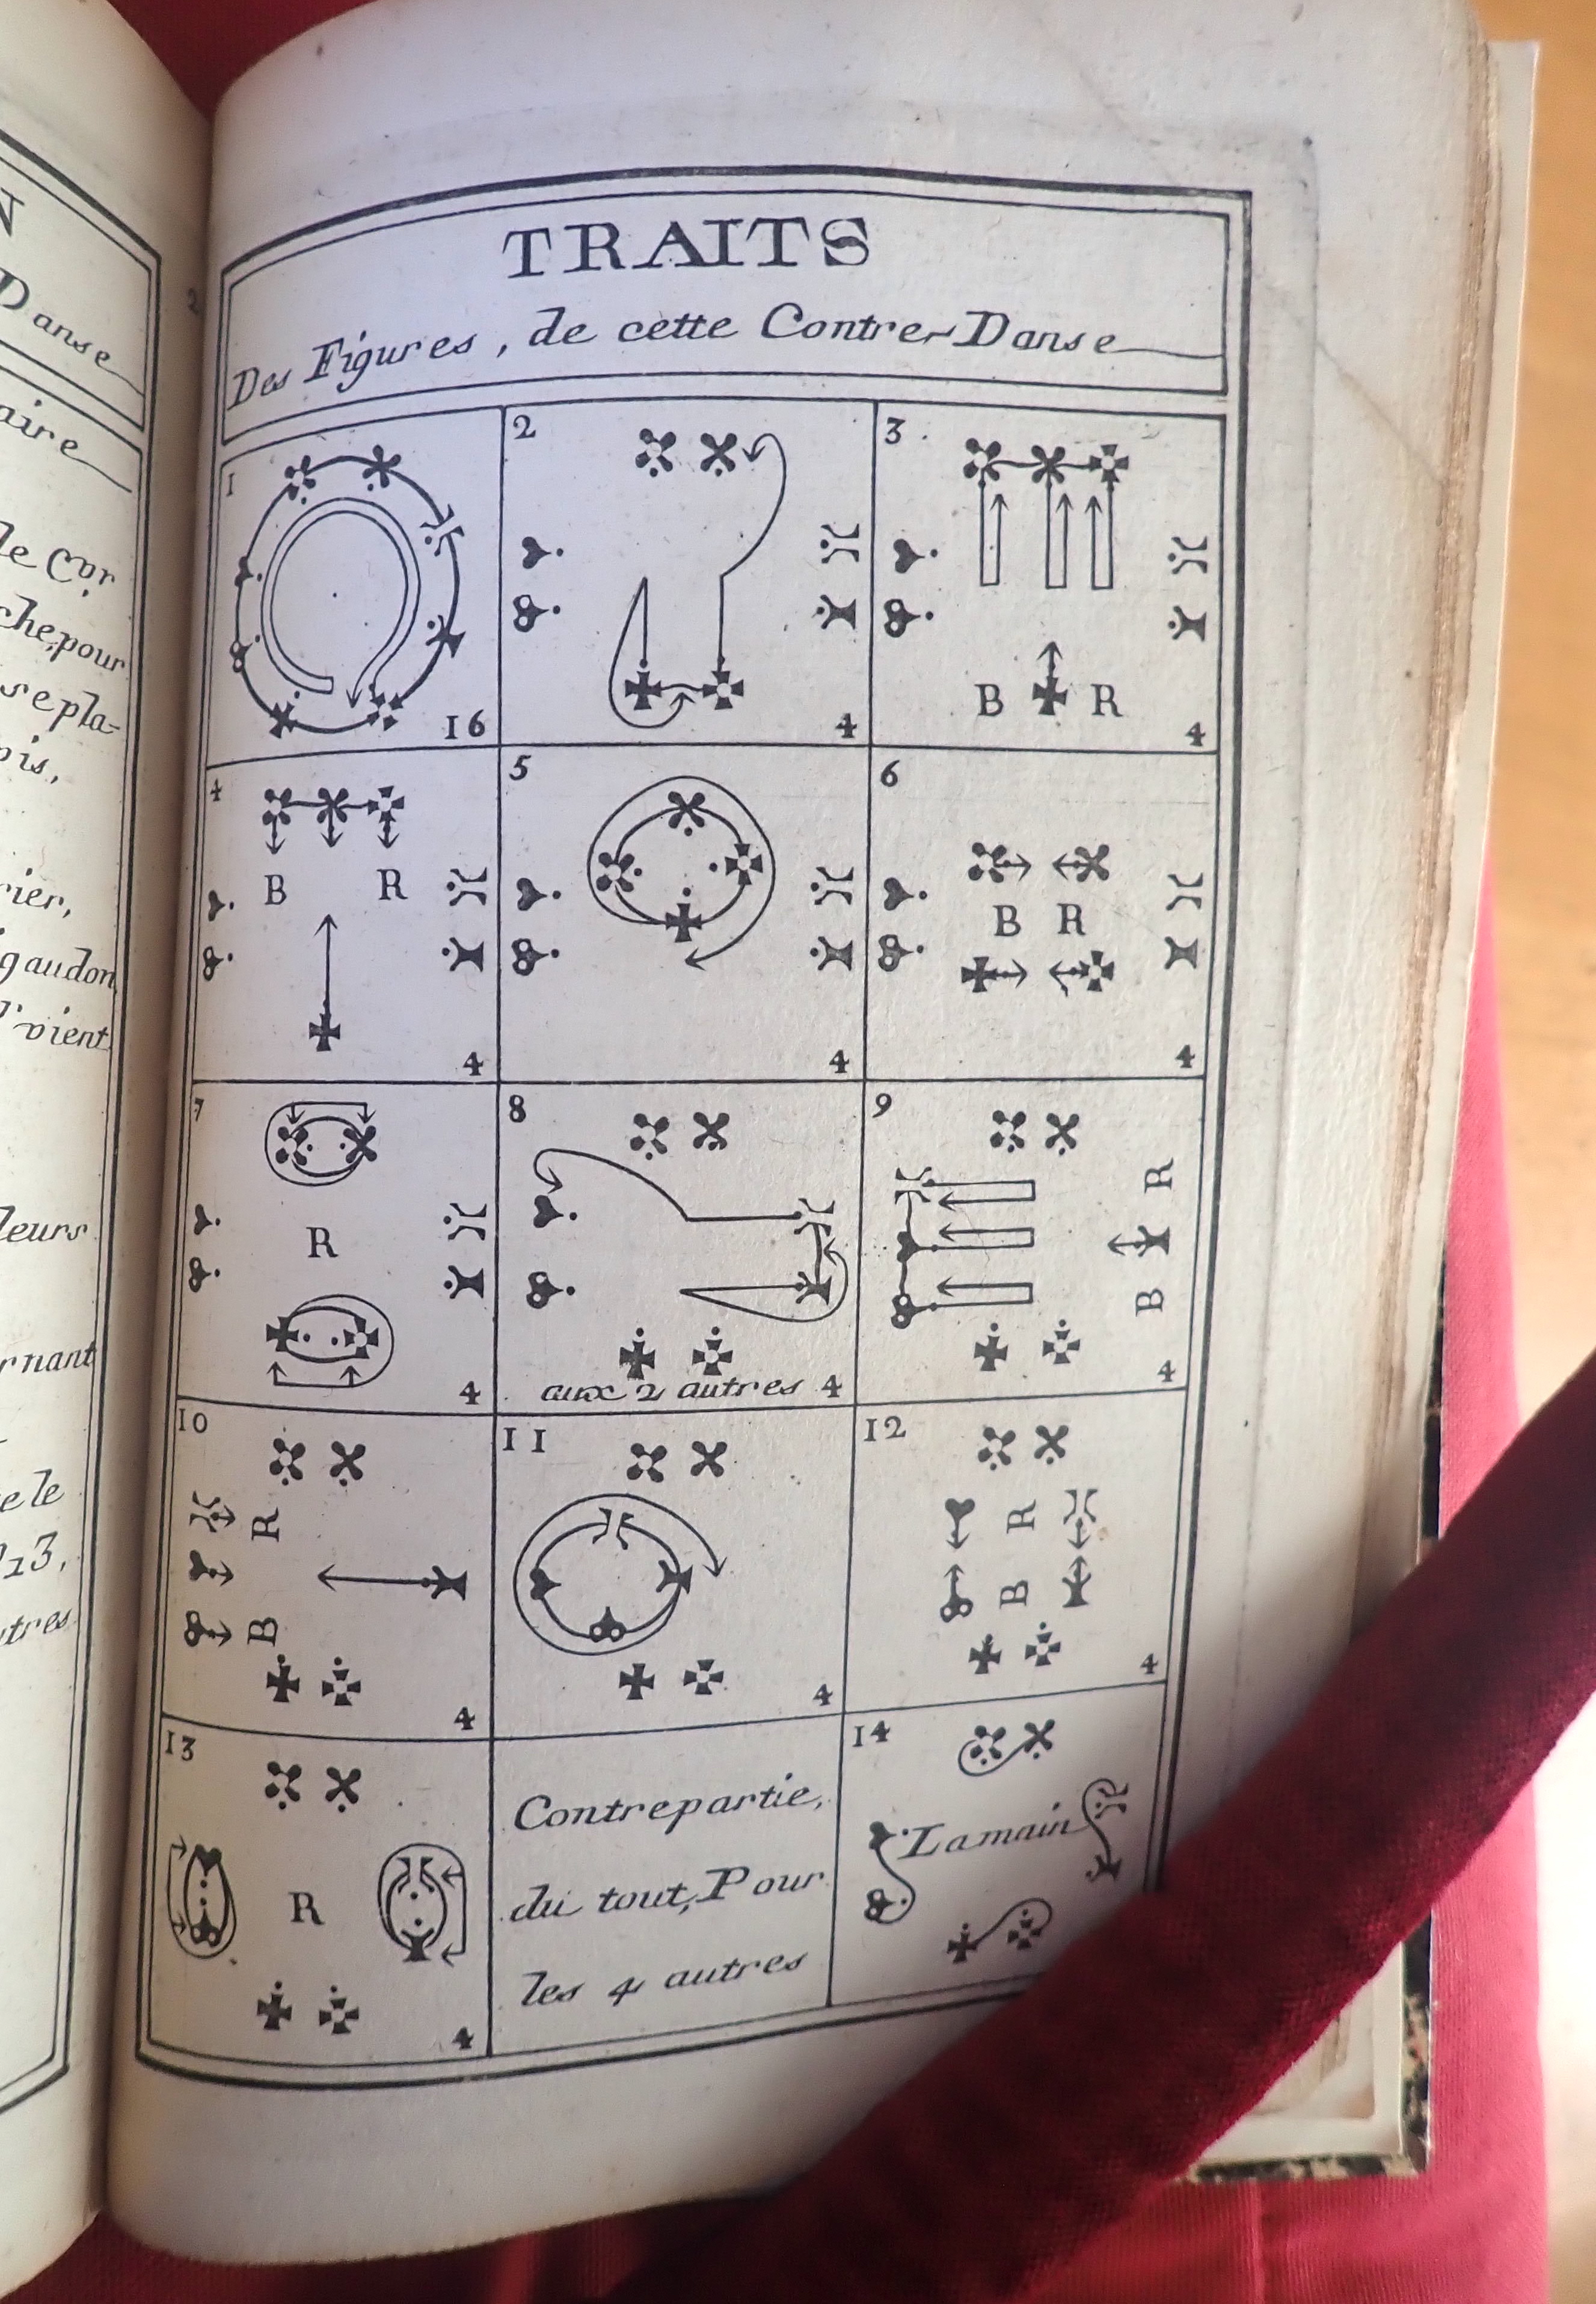 N
Danse
aire
le Cor
che, pour
se pla-
ois,
rier,
gaudon
l'vient
leurs
rnant
e le
13,
tres
TRAITS
Des Figures, de cette Contre-Danse
1
16
2
4
3.
B R
4
4
B R
4
5
4
6
B R
4
7
R
4
8
aux 2 autres 4
9
R
B
4
10
R
B
4
11
4
12
R
B
4
13
R
4
Contrepartie,
du tout, Pour
les 4 autres
14
La main